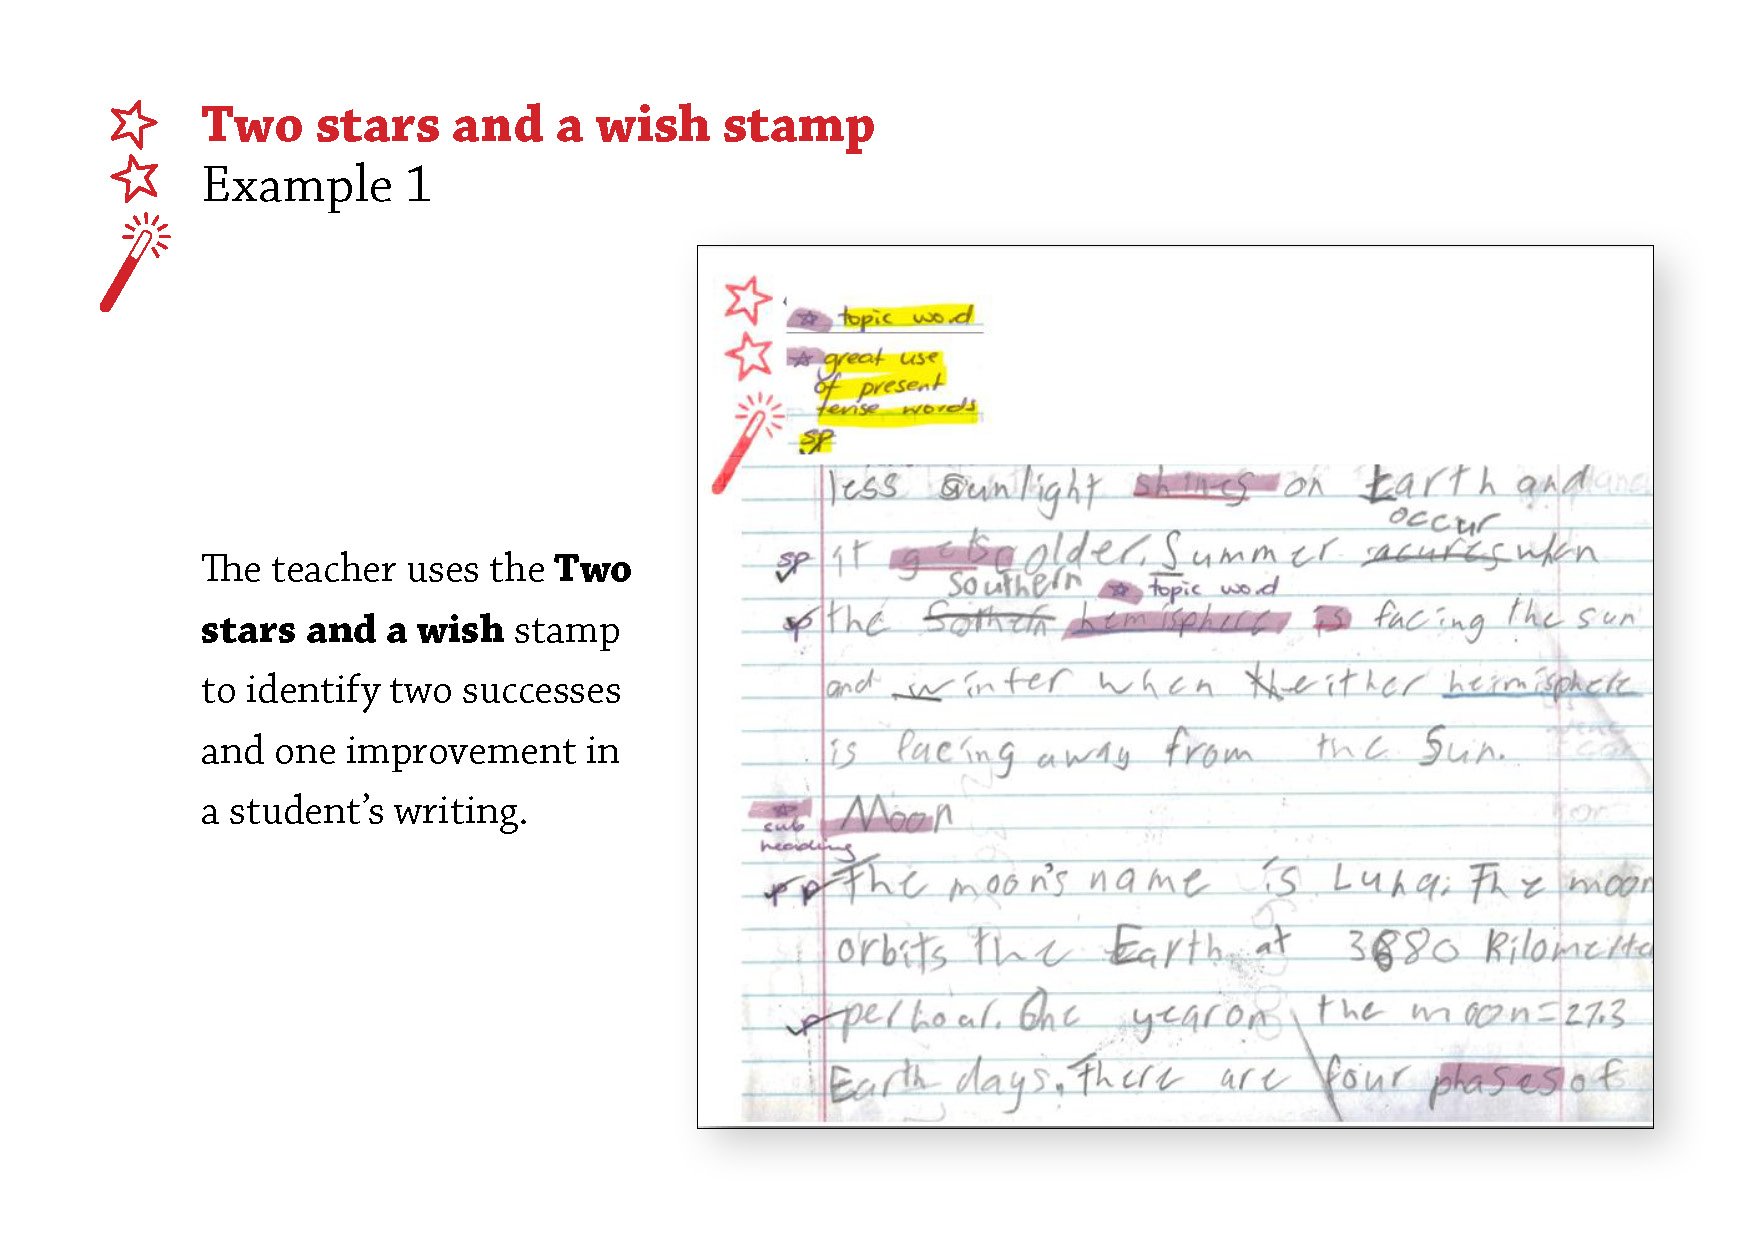 Two stars and a wish stamp
Example 1
The teacher uses the Two
stars and a wish stamp
to identify two successes
and one improvement in
a student's writing.
topic word
great use
of present
tense words
sp
less sunlight shines on Earth and
occur
sp it gets older. Summer acures when
Southern topic word
the Sothein hemisphere is facing the sun
and winter when the either heimisphere
is facing away from the Sun.
sub
heading
Moon
The moon's name is Luna. The moon
orbits the Earth at 3680 Kilometre
per hour. One year on the moon = 27.3
Earth days. There are four phases of